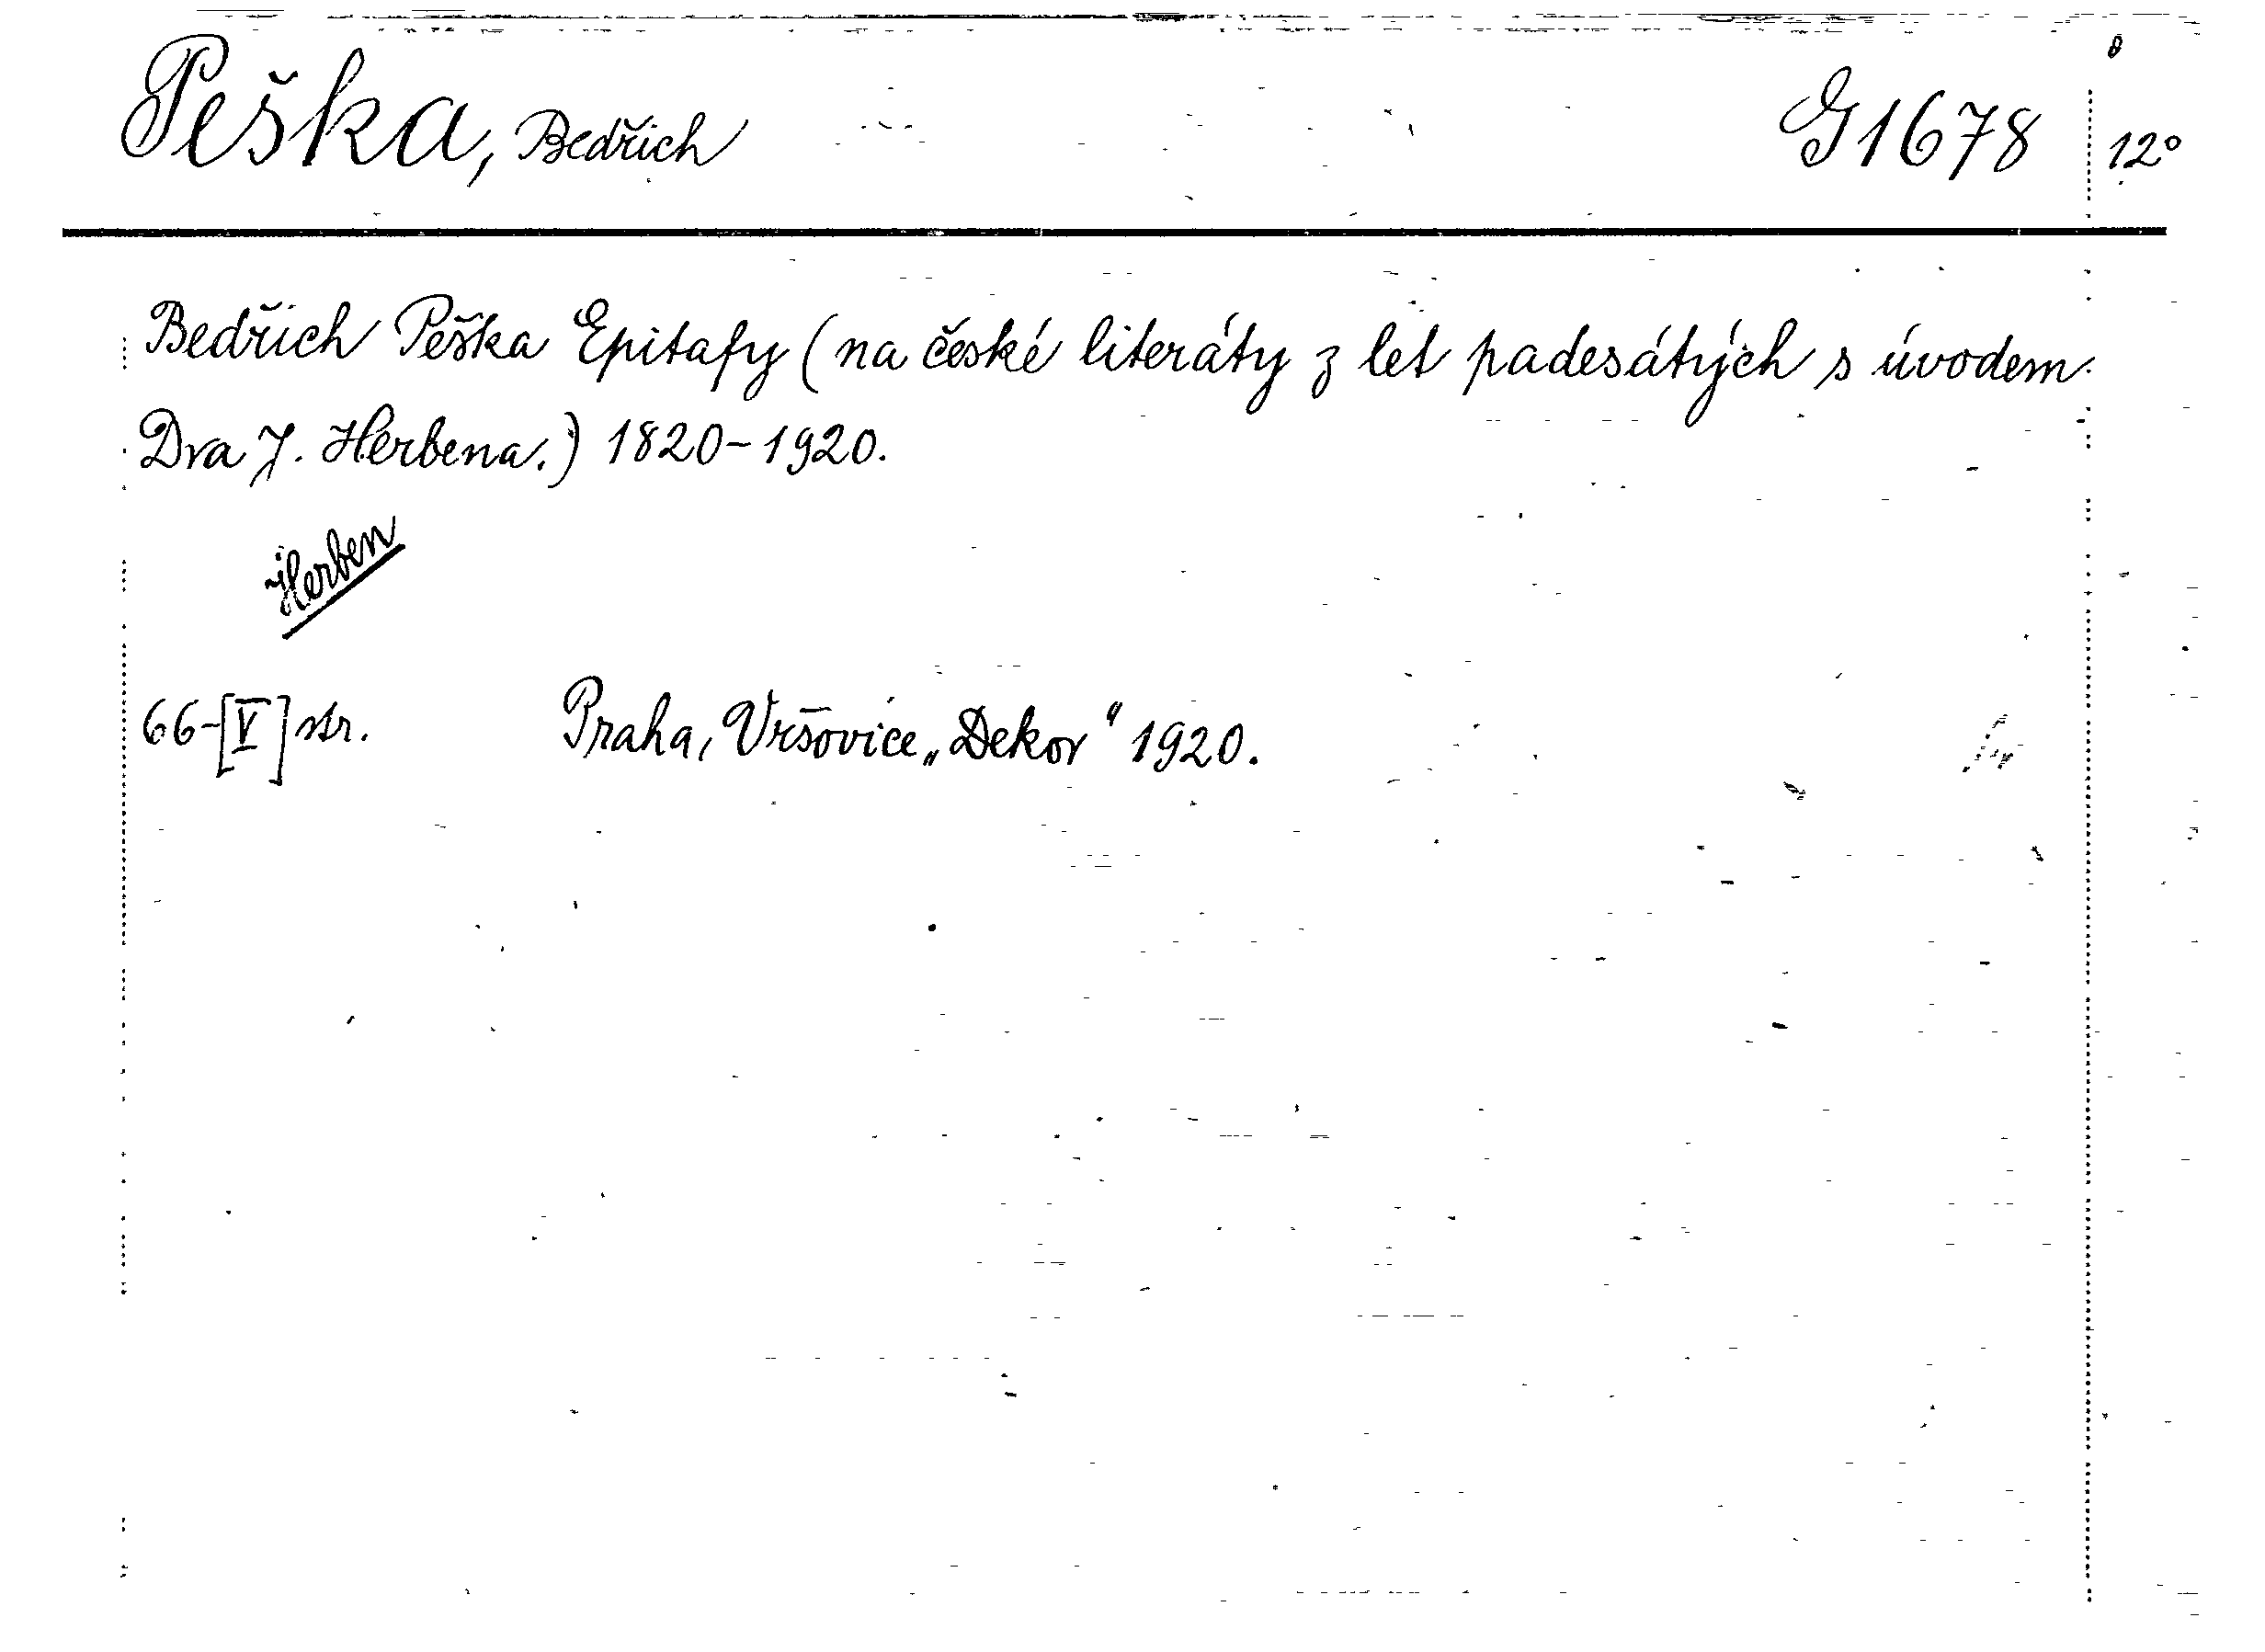 Peška, Bedřich G1678 12°
Bedřich Peška Epitafy (na české literáty z let padesátých s úvodem
Dra J. Herbena.) 1820-1920.
Herben
66-[V] str. Praha, Vršovice „Dekor" 1920.